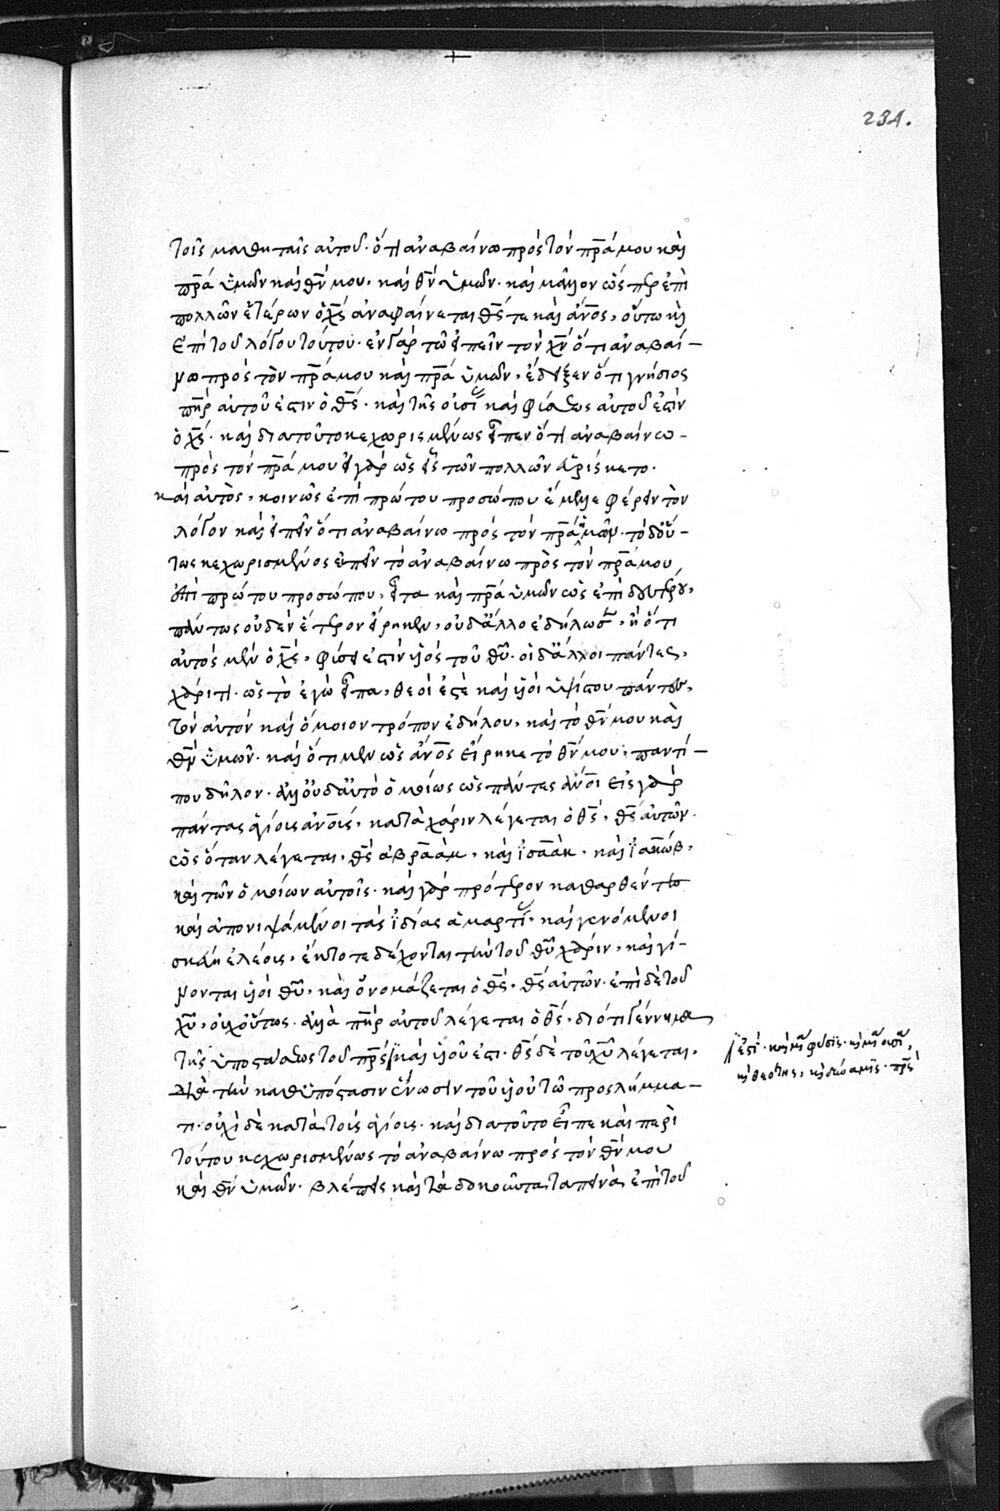 234.
τοῖς μαθηταῖς αὐτοῦ· ὅτι ἀναβαίνω πρὸς τὸν π̅ρ̅α̅ μου καὶ
π̅ρ̅α̅ ὑμῶν καὶ θ̅ν̅ μου, καὶ θ̅ν̅ ὑμῶν· καὶ μᾶλλον ὥσπερ ἐπὶ
πολλῶν ἑτέρων ὁ χ̅ς̅ ἀναφαίνεται θ̅ς̅ τε καὶ ἄν̅ο̅ς̅, οὕτω κὴ
ἐπὶ τοῦ λόγου τούτου· ἐν γὰρ τῷ εἰπεῖν τὸν χ̅ν̅ ὅτι ἀναβαί-
νω πρὸς τὸν π̅ρ̅α̅ μου καὶ π̅ρ̅α̅ ὑμῶν, ἔδειξεν ὅτι γνήσιος
π̅η̅ρ̅ αὐτοῦ ἐστιν ὁ θ̅ς̅· καὶ τῆς οὐσί καὶ φύσεως αὐτοῦ ἐστὶν
ὁ χ̅ς̅· καὶ διατοῦτο κεχωρισμένως εἶπεν ὅτι ἀναβαίνω-
πρὸς τὸν π̅ρ̅α̅ μου εἰ γὰρ ὡς εἷς τῶν πολλῶν εὑρίσκετο·
καὶ αὐτὸς, κοινῶς ἐπὶ πρώτου προσώπου ἔμελλε φέρειν τὸν
λόγον καὶ εἰπεῖν ὅτι ἀναβαίνω πρὸς τὸν π̅ρ̅α̅ ἡμῶν· τὸ δ' οὕ-
τως κεχωρισμένος εἰπεῖν τὸ ἀναβαίνω πρὸς τὸν π̅ρ̅α̅ μου,
ἐπὶ πρώτου προσώπου, εἶτα καὶ π̅ρ̅α̅ ὑμῶν ὡς ἐπὶ δευτέρου,
πάντως οὐδὲν ἕτερον εἴρηκεν, οὐδ' ἄλλο ἐδήλωσ, ἢ ὅτι
αὐτὸς μὲν ὁ χ̅ς̅, φύσει ἐστὶν υἱός τοῦ θ̅υ̅· οἱ δ' ἄλλοι πάντες,
χάριτι· ὡς τὸ ἐγὼ εἶπα, θεοί ἐστὲ καὶ υἱοὶ ὑψίστου πάντες,
τὸν αὐτὸν καὶ ὅμοιον τρόπον ἐδήλου, καὶ τὸ θ̅ν̅ μου καὶ
θ̅ν̅ ὑμῶν· καὶ ὅτι μὲν ὡς ἄν̅ο̅ς̅ εἴρηκε τὸ θ̅ν̅ μου, παντί-
που δῆλον· ἀλλ' οὐδ' αὐτὸ ὁμοίως ὡς πάντες ἄν̅ο̅ι̅ εἰς γὰρ
πάντας ἁγίοις ἀν̅ο̅ις, κατὰ χάριν λέγεται ὁ θ̅ς̅, θ̅ς̅ αὐτῶν·
ὡς ὅταν λέγεται, θ̅ς̅ ἀβραὰμ, καὶ ἰσαὰκ· καὶ ἰακώβ,
καὶ τῶν ὁμοίων αὐτοῖς· καὶ γὰρ πρότερον καθαρθέντες
καὶ ἀπονιψάμενοι τὰς ἰδίας ἁμαρτί, καὶ γενόμενοι
σκεύη ἐλέοις, ἔκτοτε δέχονται τὴν τοῦ θ̅υ̅ χάριν, καὶ γί-
νονται υἱοὶ θ̅υ̅, καὶ ὀνομάζεται ὁ θ̅ς̅, θ̅ς̅ αὐτῶν· ἐπὶ δὲ τοῦ
χ̅υ̅, οὐχ οὕτως· ἀλλὰ π̅η̅ρ̅ αὐτοῦ λέγεται ὁ θ̅ς̅, διότι γέννημα
τῆς ὑποστάσεως τοῦ π̅ρ̅ς̅ καὶ υἱοῦ ἐστι· θ̅ς̅ δὲ τοῦ χ̅υ̅ λέγεται,
διὰ τὴν καθ' ὑπόστασιν ἕνωσιν τοῦ υἱοῦ τῷ προσλήμμα-
τι· οὐχὶ δὲ κατὰ τοὺς ἁγίοις· καὶ διατοῦτο εἶπε καὶ περὶ
τούτου κεχωρισμένως τὸ ἀναβαίνω πρὸς τὸν θ̅ν̅ μου
καὶ θ̅ν̅ ὑμῶν· βλέπεις καὶ τὰ δοκοῦντα ταπεινὰ ἐπὶ τοῦ
ἐστί· κὴ μί φύσις· κὴ μί οὐσί,
κὴ θεότης, κὴ δύναμις· π̅ρ̅ς̅